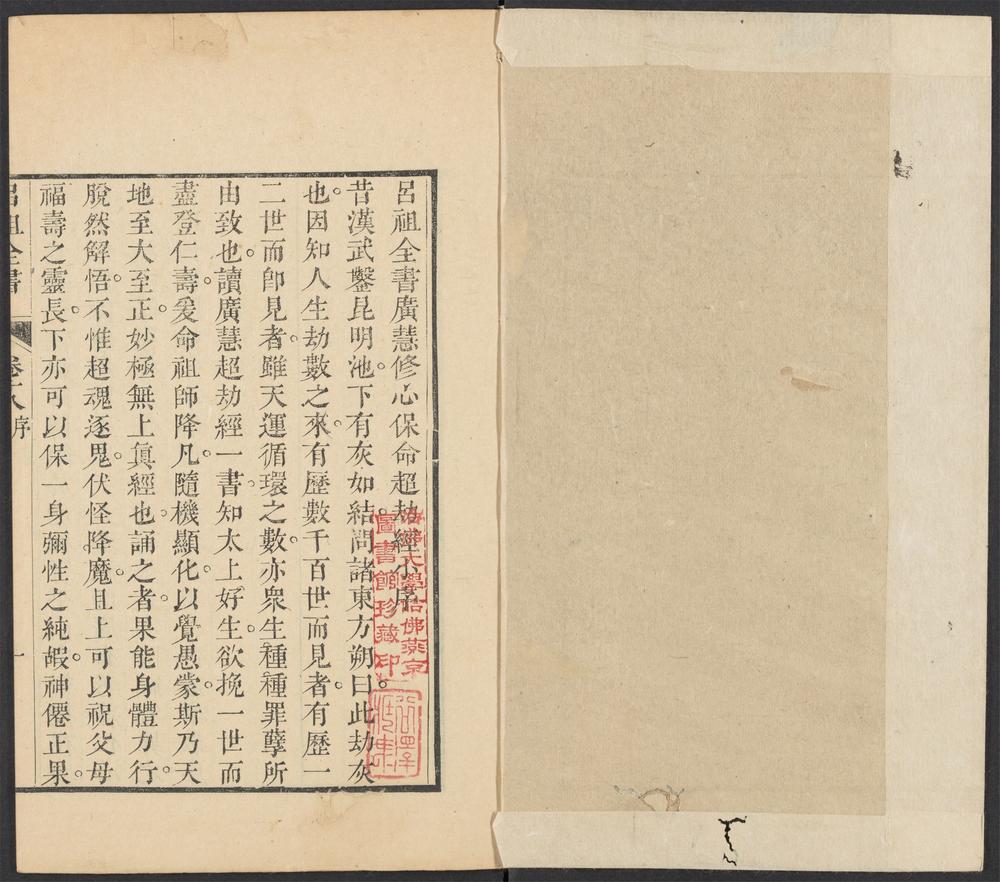 呂祖全書廣慧修心保命超劫經小序
昔漢武鑿昆明池。下有灰如結。問諸東方朔。曰此劫灰
也。因知人生劫數之來。有歷數千百世而見者。有歷一
二世而卽見者。雖天運循環之數。亦衆生種種罪孽所
由致也。讀廣慧超劫經一書。知太上好生。欲挽一世而
盡登仁壽。爰命祖師降凡。隨機顯化。以覺愚蒙。斯乃天
地至大至正。妙極無上眞經也。誦之者。果能身體力行。
脫然解悟。不惟超魂逐鬼。伏怪降魔。且上可以祝父母
福壽之靈長。下亦可以保一身彌性之純嘏。神僊正果。
呂祖全書
卷十八 序
一
哈佛大學哈佛燕京
圖書館珍藏印